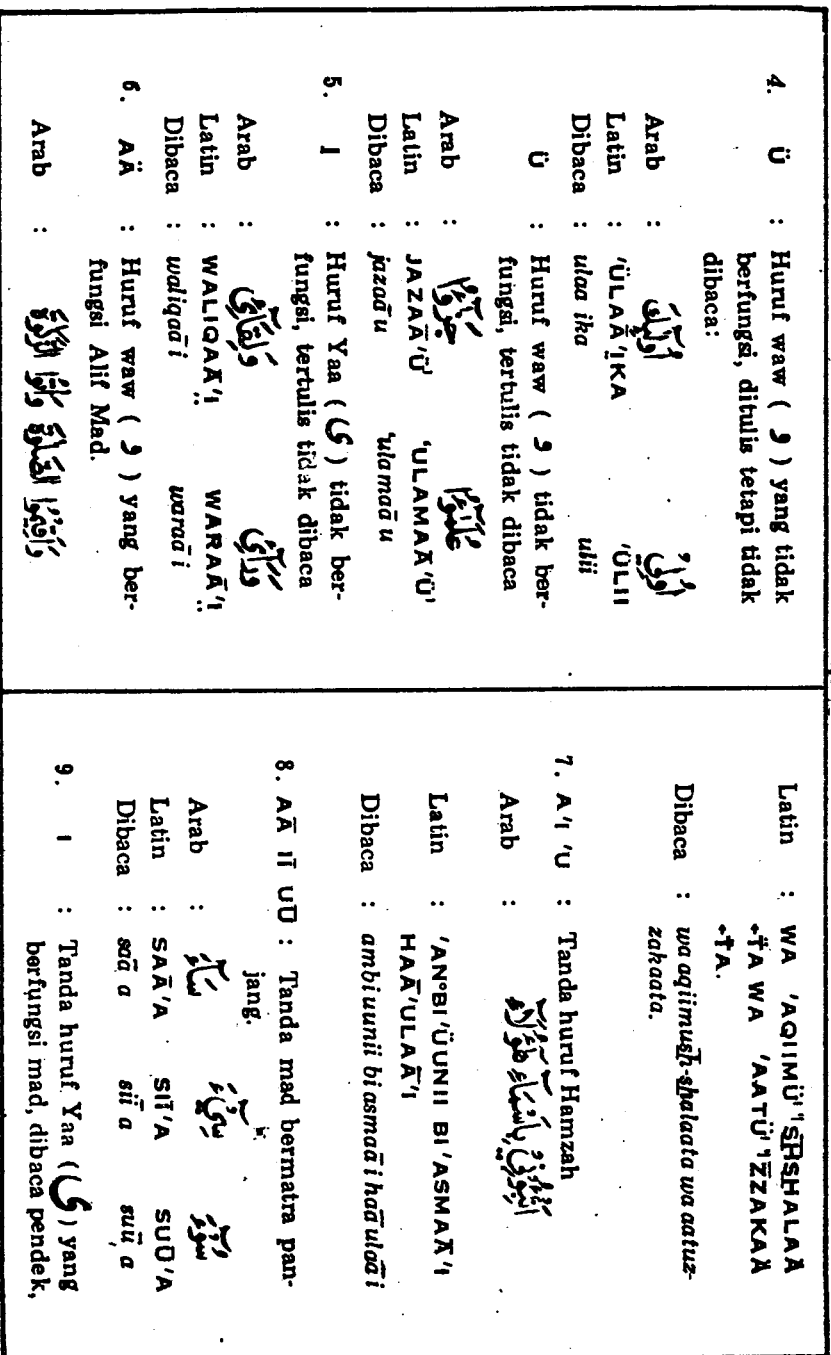 4. Ü : Huruf waw ( و ) yang tidak
berfungsi, ditulis tetapi tidak
dibaca:
Arab : أُولَٰئِكَ أُولِي
Latin : 'ÜLAĀ'IKA 'ÜLII
Dibaca : ulaa ika ulii
Ü : Huruf waw ( و ) tidak ber-
fungsi, tertulis tidak dibaca
Arab : جَزَٰٓؤُا عُلَمَٰٓؤُا
Latin : JAZAĀ'Ü' 'ULAMAĀ'Ü'
Dibaca : jazaā u 'ulamaā u
5. I : Huruf Yaa ( ى ) tidak ber-
fungsi, tertulis tidak dibaca
Arab : وَلِقَآئِ وَرَآئِ
Latin : WALIQAĀ'I WARAĀ'I
Dibaca : waliqaā i waraā i
6. AÄ : Huruf waw ( و ) yang ber-
fungsi Alif Mad.
Arab : وَأَقِيمُوا الصَّلَوٰةَ وَآتُوا الزَّكَوٰةَ
Latin : WA 'AQIIMÜ' 'ISHSHALAÄ
+T̈A WA 'AATÜ' 'IZZAKAÄ
+T̈A.
Dibaca : wa aqiimush-shalaata wa aatuz-
zakaata.
7. A'I 'U : Tanda huruf Hamzah
Arab : أَنْبِئُونِي بِأَسْمَآءِ هَٰٓؤُلَآءِ
Latin : 'AN°BI'ÜUNII BI'ASMAĀ'I
HAĀ'ULAĀ'I
Dibaca : ambiuunii bi asmaā i haā ulaā i
8. AĀ IĪ UŪ : Tanda mad bermatra pan-
jang.
Arab : سَآءَ سِيٓءَ سُوٓءَ
Latin : SAĀ'A SIĪ'A SUŪ'A
Dibaca : saā a siī a suū a
9. I : Tanda huruf Yaa ( ى ) yang
berfungsi mad, dibaca pendek,